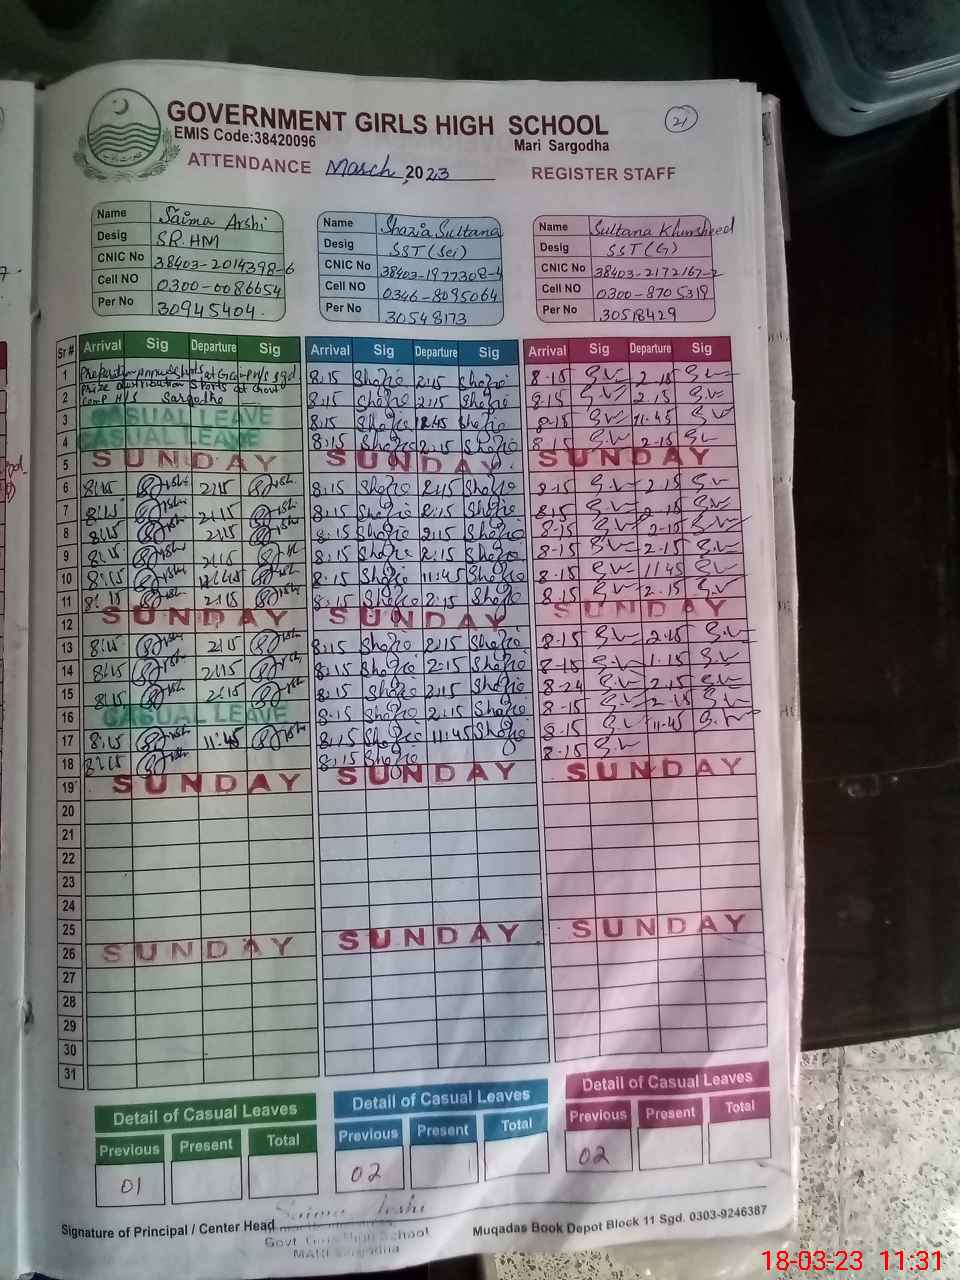 GOVERNMENT GIRLS HIGH SCHOOL
21
EMIS Code:38420096
Mari Sargodha
ATTENDANCE March, 2023 REGISTER STAFF
Name Saima Arshi
Desig SR. HM
CNIC No 38403-2014398-6
Cell NO 0300-6086654
Per No 30945404.
Name Shazia Sultana
Desig SST (Sci)
CNIC No 38403-1977308-4
Cell NO 0346-8095064
Per No 30548173
Name Sultana Khursheed
Desig SST (G)
CNIC No 38403-2172167-2
Cell NO 0300-8705319
Per No 30518429
Sr # Arrival Sig Departure Sig Arrival Sig Departure Sig Arrival Sig Departure Sig
1 Preparation Annual at H/S Sgd. 8:15 Shazie 2:15 Shazie 8-15 2-15
2 Prize distribution Sports at Govt Comp H/S Sargodha 8:15 Shazie 2:15 Shazie 8:15 2.15
3 CASUAL LEAVE 8:15 Shazie 12:45 Shazie 8-15 11-45
4 CASUAL LEAVE 8:15 Shazie 2:15 Shazie 8.15 2-15
5 SUNDAY SUNDAY SUNDAY
6 8:15 2:15 8:15 Shazie 2:15 Shazie 8-15 2.15
7 8:15 2:15 8:15 Shazie 2:15 Shazie 8.15 2-15
8 8:15 2:15 8:15 Shazie 2:15 Shazie 8-15 2-15
9 8:15 2:15 8:15 Shazie 2:15 Shazie 8-15 2-15
10 8:15 8:15 Shazie 11:45 Shazie 8-15 11.45
11 8:15 2:15 8:15 Shazie 2:15 Shazie 8.15 2.15
12 SUNDAY SUNDAY SUNDAY
13 8:15 2:15 8:15 Shazie 2:15 Shazie 8-15 2-15
14 8:15 2:15 8:15 Shazie 2:15 Shazie 8-15 1.15
15 8:15 2:15 8:15 Shazie 2:15 Shazie 8-24 2.15
16 CASUAL LEAVE 8:15 Shazie 2:15 Shazie 8-15 2-15
17 8:15 11:45 8:15 Shazie 11:45 Shazie 8-15 11-45
18 8:15 8:15 Shazie 8-15
19 SUNDAY SUNDAY SUNDAY
20
21
22
23
24
25
26 SUNDAY SUNDAY SUNDAY
27
28
29
30
31
Detail of Casual Leaves Detail of Casual Leaves Detail of Casual Leaves
Previous Present Total Previous Present Total Previous Present Total
01 02 02
Signature of Principal / Center Head Saima Arshi
Govt. Girls High School
MARI Sargodha
Muqadas Book Depot Block 11 Sgd. 0303-9246387
18-03-23 11:31